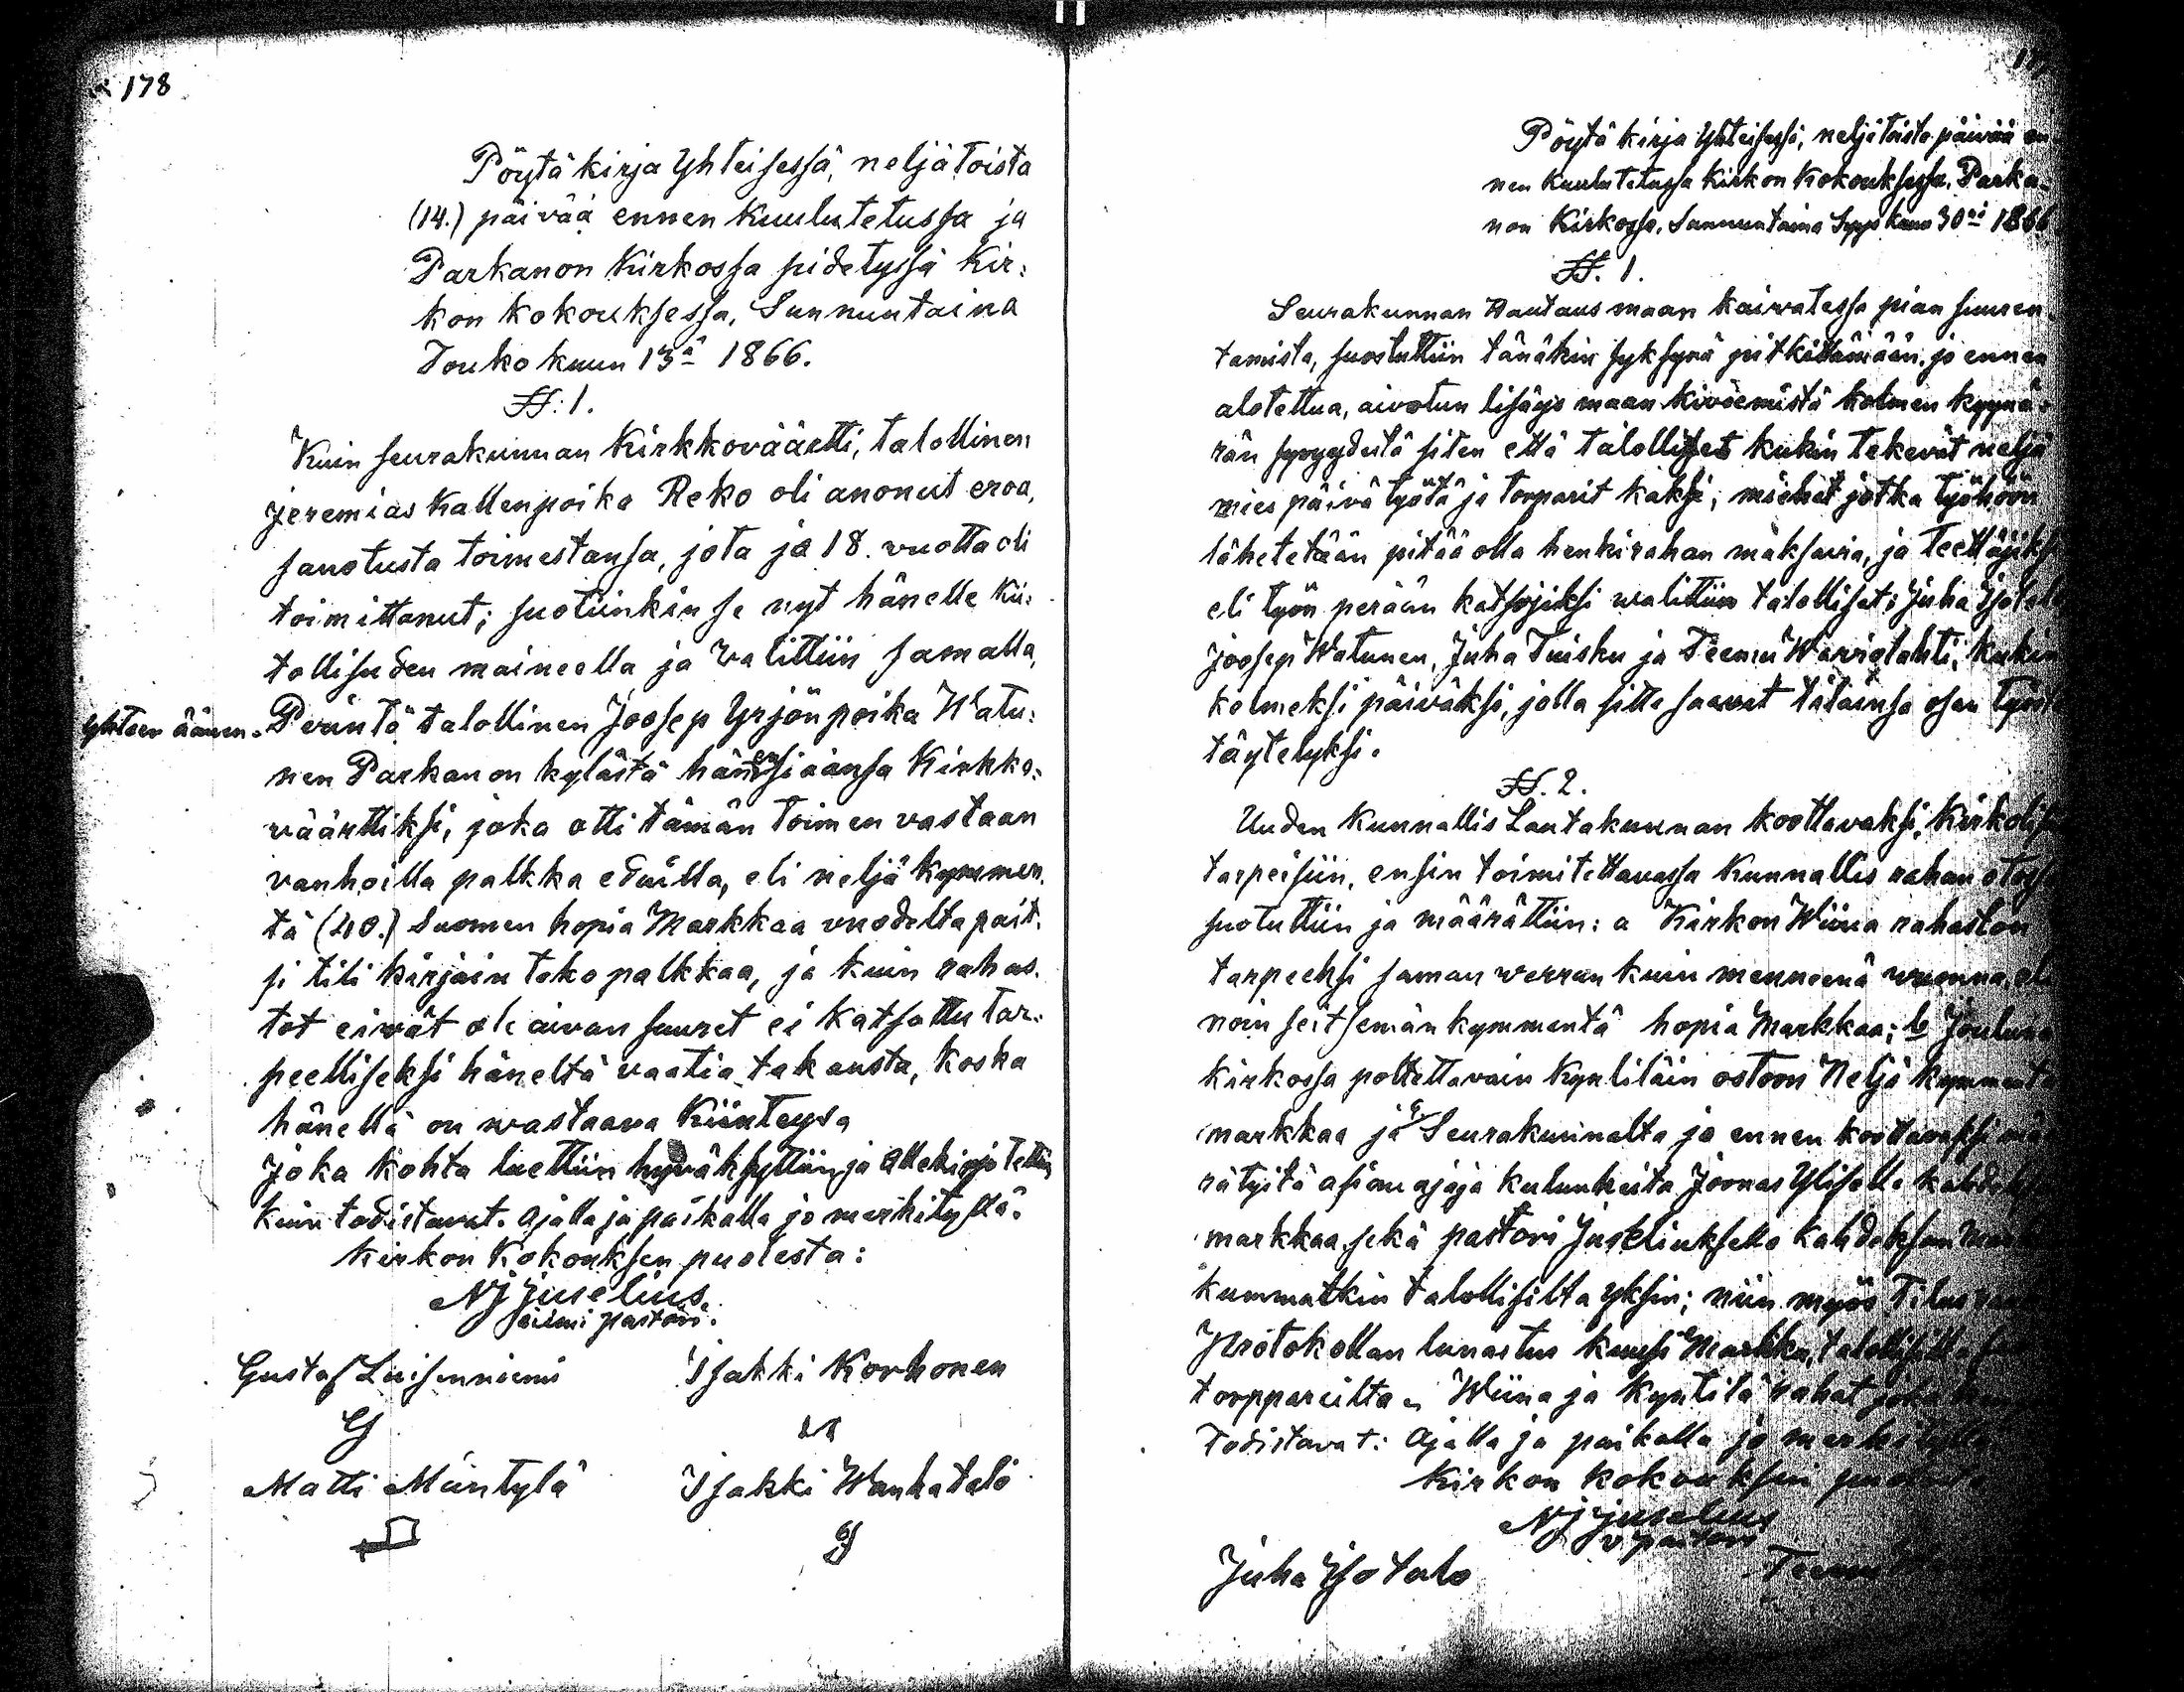 178
Pöytä kirja Yhteisessä, neljätoista
(14.) päivää ennen Kuulutetussa ja
Parkanon Kirkossa pidetyssä Kir:
kon kokouksessa, Sunnuntaina
Toukokuun 13ä 1866.
§§: 1.
Kuin seurakunnan Kirkkoväärtti, talollinen
Jeremias Kallenpoika Reko oli anonut eroa,
sanotusta toimestansa, jota jo 18. vuotta oli
toimittanut; suotiinkin se nyt hänelle Kii:
tollisuden maineella ja valittiin samalla,
yhteen ääneen. Perintö talollinen Joosep Yrjön poika Watu:
nen Parkanon kylästä hänen siaansa Kirkko:
väärttiksi, joka otti tämän toimen vastaan
vanhoilla palkka eduilla, eli neljä kymmen
tä (40.) Suomen hopia Markkaa vuodelta pait.
si tili kirjain teko palkkaa, ja kuin rahas.
tot eivät ole aivan suuret ei katsottu tar:
peelliseksi häneltä vaatia takausta, koska
hänellä on wastaava Kiinteys
Joka kohta luettiin hyväksyttiin ja allekirjotettiin
kuin todistavat. Ajalla ja paikalla jo merkityllä.
Kirkon Kokouksen puolesta:
NJ Juselius
pastori.
Gustaf Luisenniemi Isakki Korhonen
Matti Mäntylä Isakki Wanhatalo
Pöytä kirja Yhteisessä, neljätoista päivää en
nen kuulutetussa Kirkon Kokouksessa, Parka-
non Kirkossa, Sunnuntaina Syys kuun 30nä 1866
§§. 1.
Seurakunnan Hautausmaan kaivatessa pian suuren
tamista, suostuttiin tänäkin syksynä pitkittämään jo ennen
alotettua, aivotun lisäys maan kivoemistä kolmen kyynä:
rän syvyydestä siten että talolliset kukin tekevät neljä
mies päivä työtä ja torparit kaksi, miehet jotka työhön
lähetetään pitää olla henkirahan maksavia, ja teettäjiks
eli työn perään katsojiksi walittiin talolliset: Juha Isotalo
Joosep Watunen, Juha Tuisku ja Teemu Warvialahti, kukin
kolmeksi päiväksi, jolla sitte saavat tilainsa osan työs
täytetyksi.
§§. 2.
Uuden Kunnallis Lautakunnan koottavaksi, Kirkolis
tarpeisiin, ensin toimitettavassa Kunnallis rahan otos
suotuttiin ja määrättiin: a Kirkon Wiina rahaston
tarpeeksi saman werran kuin menneenä wuonna, eli
noin seitsemänkymmentä hopia Markkaa; b Jouluna
kirkossa poltettavain Kynttiläin ostoon Neljä kymmentä
markkaa ja c Seurakunnalta jo ennen koottavaksi mää
rätyitä asian ajaja kulunkeita Joonas Ylisell kahdek
markkaa, sekä pastori Juseliukselle kahdeksan Mark
kummatkin talollisilta yksin; niin myös
Protokollan lunastus kuusi Markka, talollisilta
torppareilta. Wiina ja kyntilä rahat
Todistavat: Ajalla ja paikalla jo merkityllä
Kirkon kokouksen puolesta
NJ Juselius
v pastori
Juha Isotalo Teemu